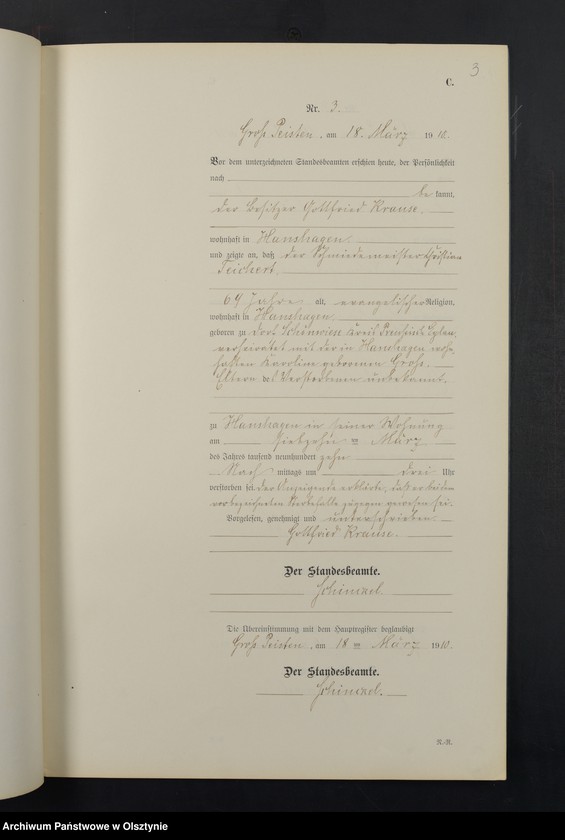 3
C.
Nr. 3.
Groß Peisten, am 18. März 1910.
Vor dem unterzeichneten Standesbeamten erschien heute, der Persönlichkeit
nach
be kannt,
der Besitzer Gottfried Krause,
wohnhaft in Hanshagen
und zeigte an, daß der Schmiedemeister Christian
Teichert
69 Jahre alt, evangelischer Religion,
wohnhaft in Hanshagen
geboren zu Dorf Schönwiese Kreis Preußisch Eylau,
verheiratet mit der in Hanshagen wohn-
haften Karoline geborenen Groß.
Eltern des Verstorbenen unbekannt.
zu Hanshagen in seiner Wohnung
am siebzehn ten März
des Jahres tausend neunhundert zehn
Nach mittags um drei Uhr
verstorben sei. Der Anzeigende erklärte, daß er bei dem
vorbezeichneten Sterbefalle zugegen gewesen sei.
Vorgelesen, genehmigt und unterschrieben
Gottfried Krause.
Der Standesbeamte.
Schimael
Die Übereinstimmung mit dem Hauptregister beglaubigt
Groß Peisten, am 18 ten März 1910.
Der Standesbeamte.
Schimael.
Archiwum Państwowe w Olsztynie